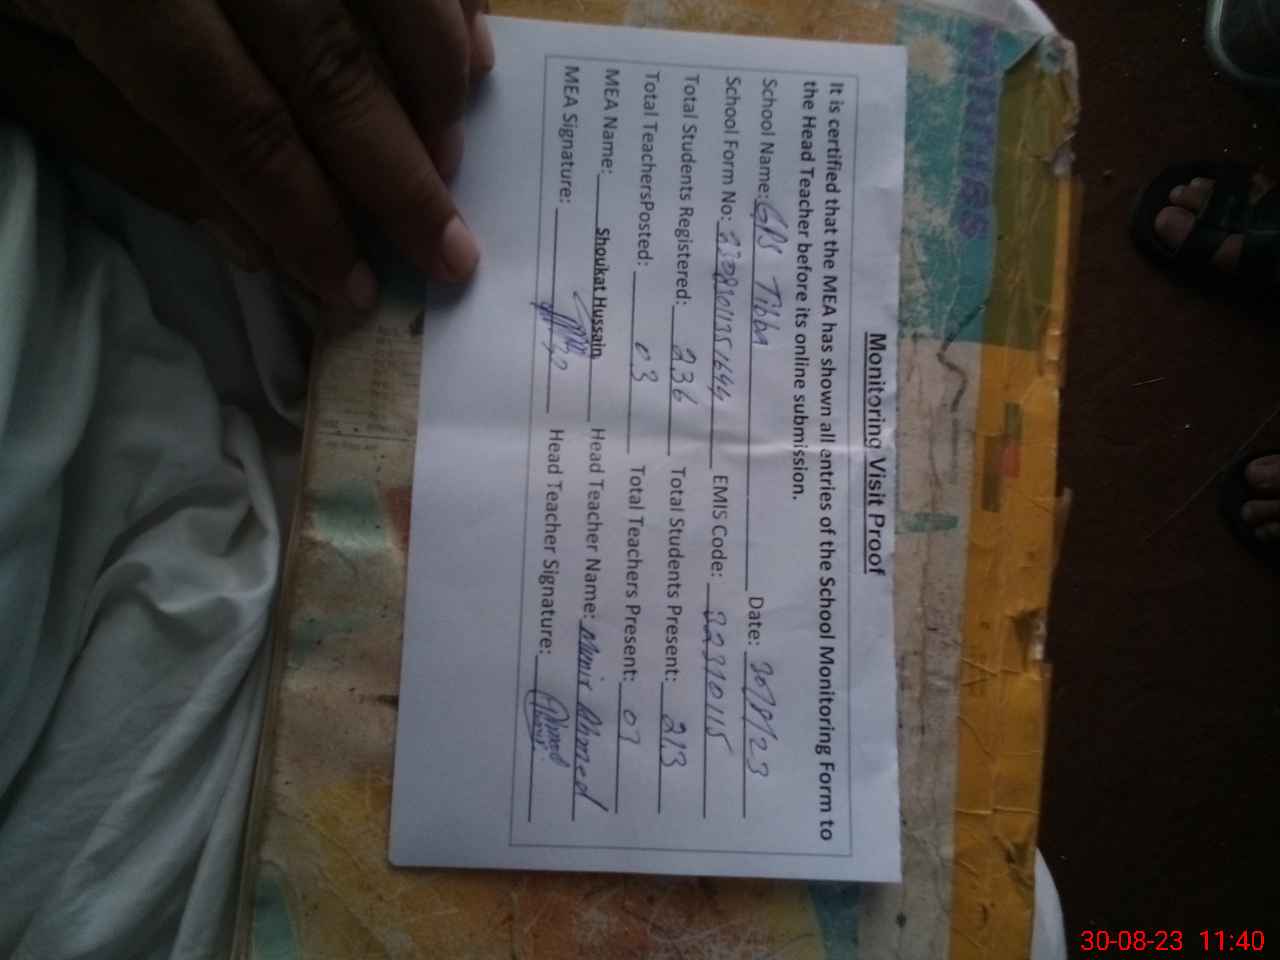 Monitoring Visit Proof
It is certified that the MEA has shown all entries of the School Monitoring Form to
the Head Teacher before its online submission.
School Name: GPS Tibba Date: 30/8/23
School Form No: EMIS Code: 32310115
Total Students Registered: 236 Total Students Present: 213
Total TeachersPosted: 03 Total Teachers Present:
MEA Name: Shoukat Hussain Head Teacher Name: Munir Ahmed
MEA Signature: Head Teacher Signature:
30-08-23 11:40